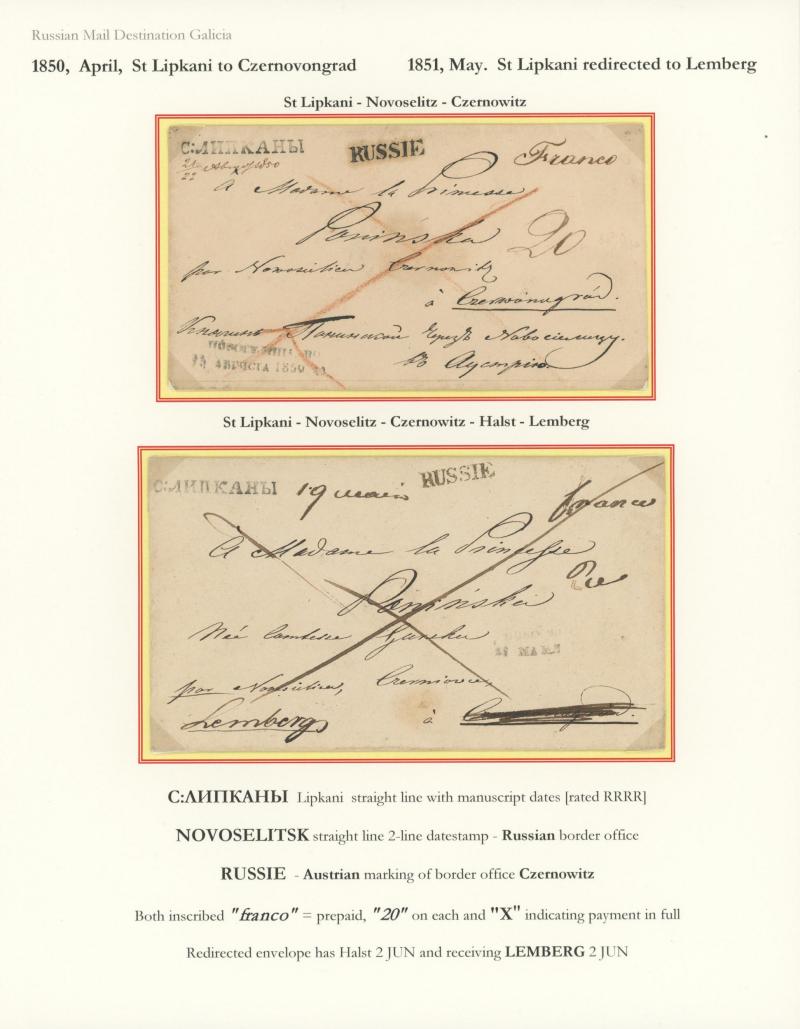 Russian Mail Destination Galicia
1850, April, St Lipkani to Czernovongrad
1851, May. St Lipkani redirected to Lemberg
St Lipkani - Novoselitz - Czernowitz
С:ЛИПКАНЫ
RUSSIE
Franco
21/22 1850
A Madame la Princesse
Poninska
20
par Nowosielica Czernowitz
à Czerwonogród.
Княгинѣ Понинской Черезъ Новоселицу.
въ Аустрію
НОВОСЕЛИЦА
АВГУСТА 1850
St Lipkani - Novoselitz - Czernowitz - Halst - Lemberg
С:ЛИПКАНЫ
19
RUSSIE
franco
À Madame la Princesse
Ponińska
Née Comtesse
МАЯ
par Czerniovce,
Lemberg
à
С:ЛИПКАНЫ Lipkani straight line with manuscript dates [rated RRRR]
NOVOSELITSK straight line 2-line datestamp - Russian border office
RUSSIE - Austrian marking of border office Czernowitz
Both inscribed "franco" = prepaid, "20" on each and "X" indicating payment in full
Redirected envelope has Halst 2 JUN and receiving LEMBERG 2 JUN